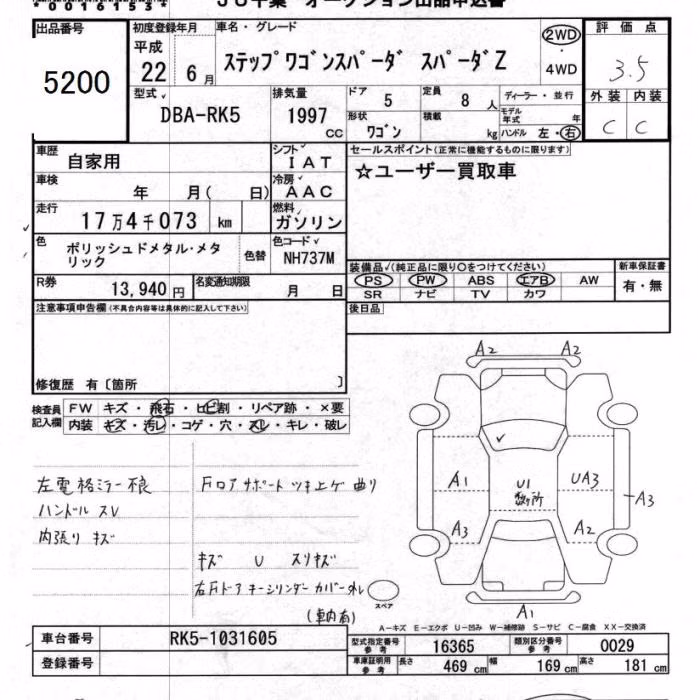 00161534 JU千葉 オークション出品申込書
出品番号
5200
初度登録年月
平成
22年 6月
車名・グレード
ステップワゴンスパーダ スパーダZ
2WD
・
4WD
評価点
3.5
外装 内装
C C
型式
DBA-RK5
排気量
1997
cc
ドア
5
定員
8人
形状
ワゴン
積載
kg
ディーラー・並行
モデル年式 年
ハンドル 左・右
車歴
自家用
シフト
IAT
車検
年 月( 日)
冷房
AAC
走行
17万4千073 km
燃料
ガソリン
色
ポリッシュドメタル・メタリック
色替
色コード
NH737M
R券
13,940円
名変通知期限
月 日
セールスポイント(正常に機能するものに限ります)
☆ユーザー買取車
装備品√(純正品に限り○をつけてください)
PS PW ABS エアB AW
SR ナビ TV カワ
新車保証書
有・無
後日品
注意事項申告欄(不具合内容等は具体的に記入して下さい)
修復歴 有〔箇所 〕
検査員
記入欄
FW キズ・飛石・ヒビ割・リペア跡・×要
内装 キズ・汚レ・コゲ・穴・スレ・キレ・破レ
左電格ミラー不良
ハンドル スレ
内張り キズ
Fロアサポート ツキ上ゲ 曲り
キズ U スリキズ
右Fドア キーシリンダー カバー外レ
(車内有)
A2 A2
A1
U1
数ヶ所
UA3
A3
A3
A2
A1
スペア
A-キズ E-エクボ U-凹み W-補修跡 S-サビ C-腐食 XX-交換済
車台番号
RK5-1031605
登録番号
型式指定番号
参考
16365
類別区分番号
参考
0029
車庫証明用
参考
長さ 469cm 幅 169cm 高さ 181cm